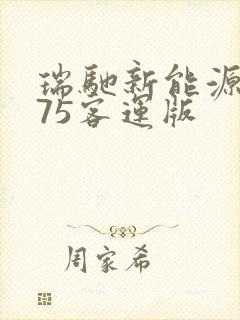 瑞馳新能源
75客運版
周家希